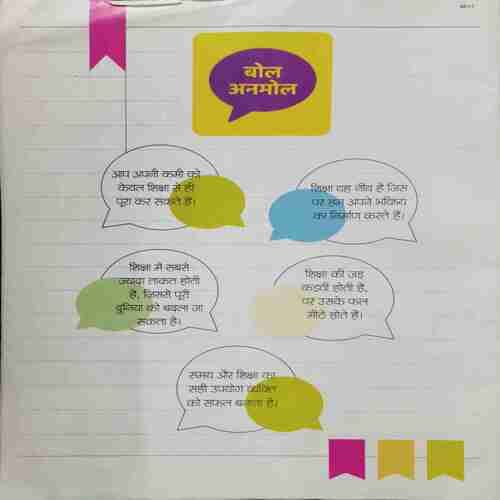 बोल
अनमोल
आप अपनी कमी को
केवल शिक्षा से ही
पूरा कर सकते हैं।
शिक्षा वह नींव है जिस
पर हम अपने भविष्य
का निर्माण करते हैं।
शिक्षा में सबसे
ज्यादा ताकत होती
है, जिससे पूरी
दुनिया को बदला जा
सकता है।
शिक्षा की जड़
कड़वी होती है,
पर उसके फल
मीठे होते हैं।
समय और शिक्षा का
सही उपयोग व्यक्ति
को सफल बनाता है।